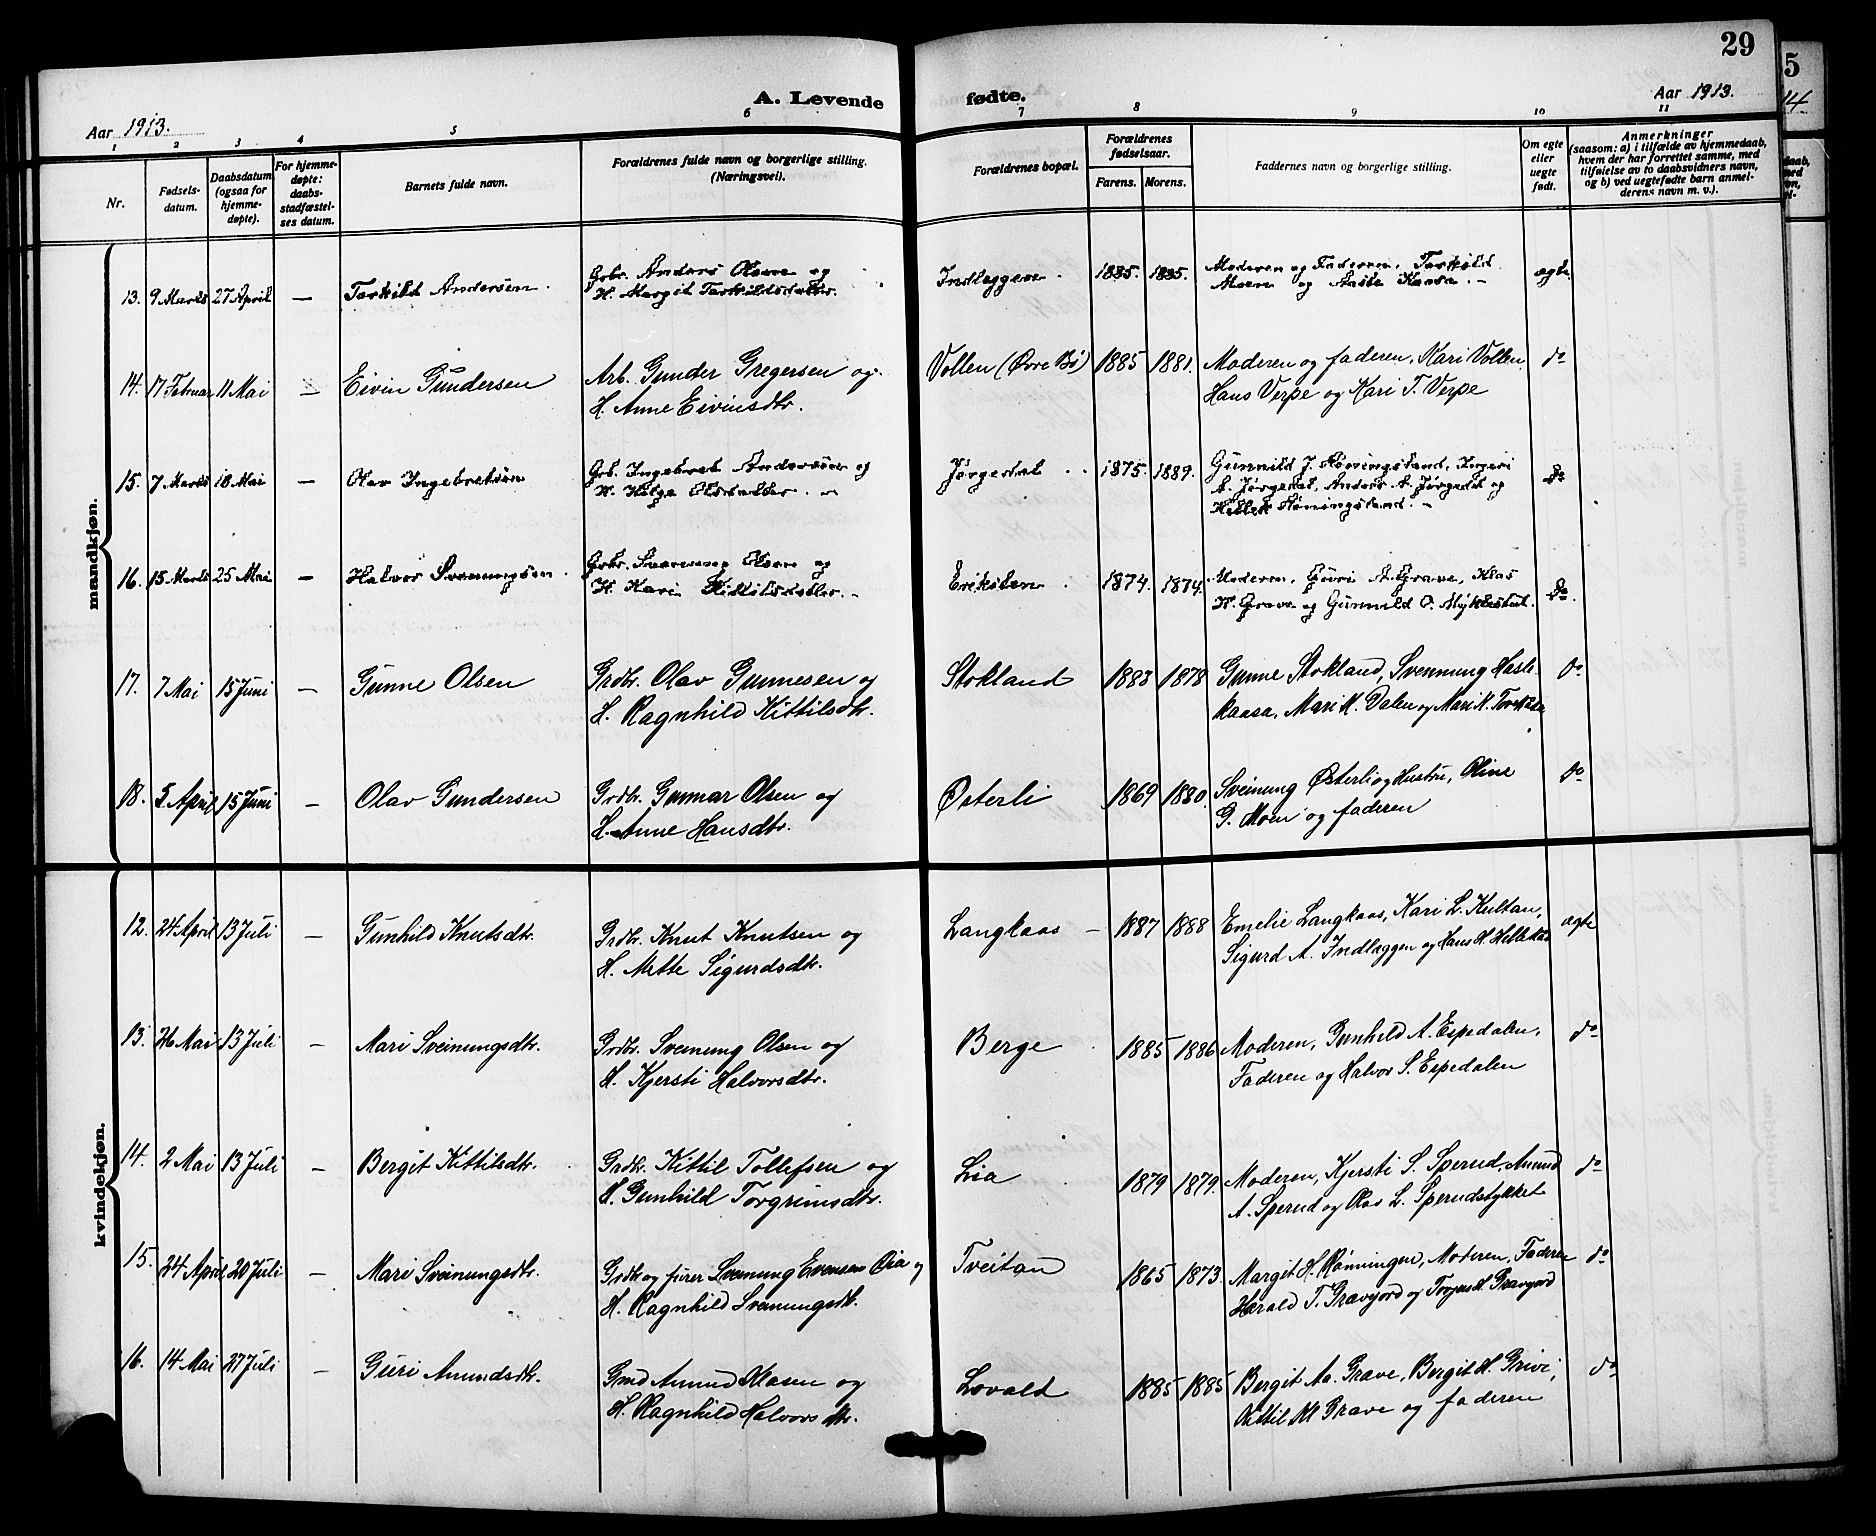 29
5
A. Levende fødte.
Aar 1913.
Aar 1913.
14
1 2 3 4 5 6 7 8 9 10 11
Nr.
Fødsels-
datum.
Daabsdatum
(ogsaa for
hjemme-
døpte).
For hjemme-
døpte:
daabs-
stadfæstel-
ses datum.
Barnets fulde navn.
Forældrenes fulde navn og borgerlige stilling.
(Næringsvei).
Forældrenes bopæl.
Forældrenes
fødselsaar.
Farens. Morens.
Faddernes navn og borgerlige stilling.
Om egte
eller
uegte
født.
Anmerkninger
(saasom: a) i tilfælde av hjemmedaab,
hvem der har forrettet samme, med
tilføielse av to daabsvidners navn,
og b) ved uegtefødte barn anmel-
derens navn m. v.).
mandkjøn.
13. 9 Marts 27 April — Tarkild Andersen. Gbr. Anders Olsen og Indlæggen. 1885. 1885. Moderen og Faderen, Tarkild ægte
H. Margit Tarkildsdatter. Moen og Aasle Kaasa. —
14. 17 Februar 11 Mai — Eivin Gundersen Arb. Gunder Gregersen og Vollen (Øvre Bø) 1885 1881. Moderen og faderen, Kari Vollen, do
H. Anne Eivinsdtr. Hans Verpe og Kari T. Verpe
15. 7 Marts 18 Mai — Olav Ingebretsen Gb. Ingebret Andersen og Jørgedal 1875. 1889. Gunnild J. Rønningsland, Ingeri do
H. Helge Olsdatter. — A. Jørgedal, Anders A. Jørgedal og
Rønningsland. —
16. 15 Marts 25 Mai — Halvor Svenningsen. Gbr. Svenning Olsen og Erikstein 1874. 1874. Moderen, Gúri A. Grave, Klas do.
H. Kari Kittilsdatter. — H. Grave og Gunnild O. Myklestul.
17. 7 Mai 15 Juni — Gunne Olsen Grdbr. Olav Gunnesen og Stokland 1883 1878 Gunne Stokland, Svennung Hasle- do
H. Ragnhild Kittilsdtr. kaasa, Mari K. Dalen og Mari K.
18. 5 April 15 Juni — Olav Gundersen Grdbr. Gunnar Olsen og Østerli 1869 1880. Sveinung Østerli og Hustru, Oline do
H. Anne Hansdtr. G. Moen og faderen
kvindekjøn.
12. 24 April 13 Juli — Gunhild Knutsdtr. Grdbr. Knut Knutsen og Langkaas — 1887 1888 Emelie Langkaas, Kari L. Kultan, ægte
H. Mette Sigurdsdtr. Sigurd A. Indlæggen og Hans H.
13. 26 Mai 13 Juli — Mari Sveinungsdtr. Grdbr. Sveinung Olsen og Berge 1885 1886 Moderen, Gunhild A. Espedalen, do
H. Kjersti Halvorsdtr. Faderen og Halvor S. Espedalen
14. 2 Mai 13 Juli — Bergit Kittilsdtr. Grdbr. Kittil Tollefsen og Lia 1879 1879. Moderen, Kjersti S. Sperud, Anund do
H. Gunhild Torgrimsdtr. A. Sperud og Olav L. Sperudstykket
15. 24 April 20 Juli — Mari Sveinungsdtr. Grdbr og furer Sveinung Evensen Lia og Tveitan 1865 1873. Margit H. Rønningen, Moderen, Faderen do
H. Ragnhild Sveinungsdt. Harald T. Gravjord og Torjus H. Gravjord
16. 14 Mai 27 Juli — Guri Anundsdtr. Grmd Anund Klasen og Lovald 1885 1885 Bergit Aa. Grave, Bergit H. Grivi, do
H. Ragnhild Halvorsdtr. Kittil Kl Grave og faderen